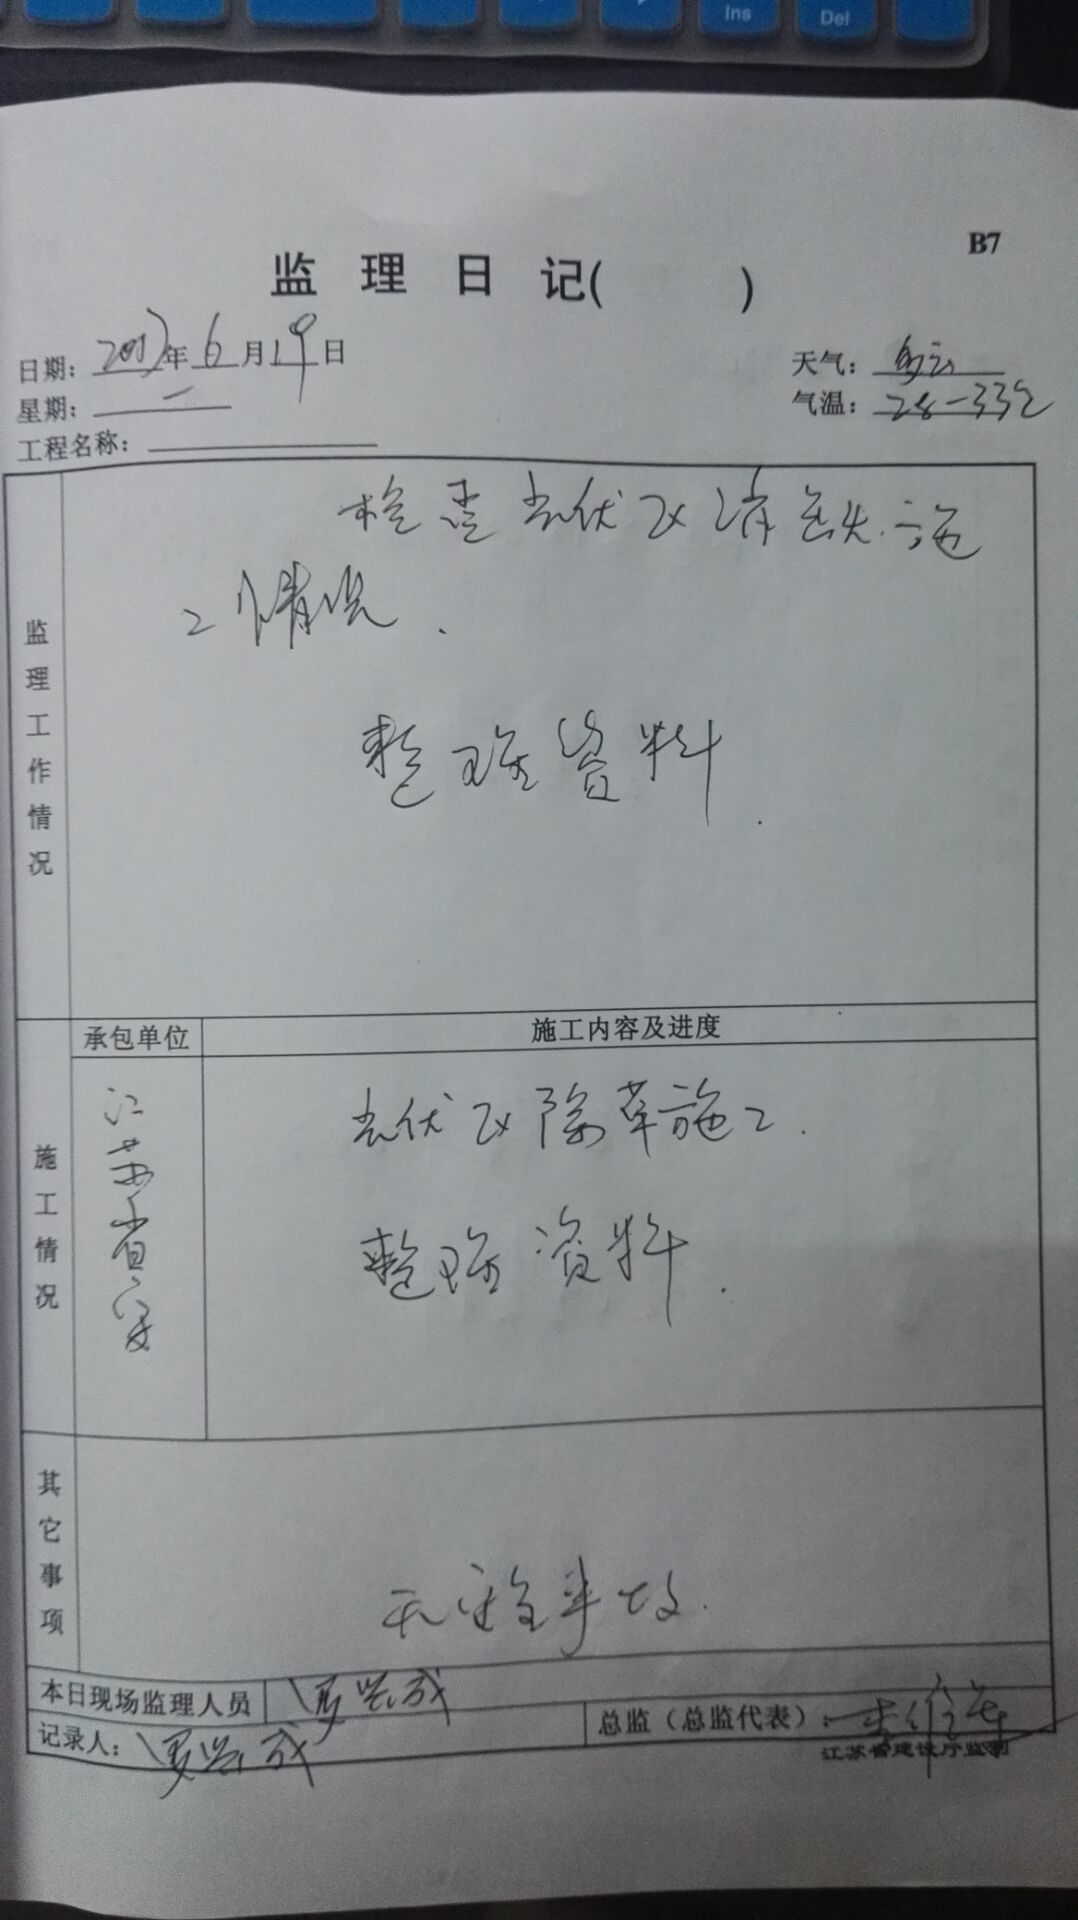 Ins
Del
B7
监理日记( )
日期: 2017年6月19日
天气: 多云
星期: 一
气温: 28-33℃
工程名称:
监理工作情况
检查光伏区消缺施
工情况.
整理资料.
承包单位
施工内容及进度
施工情况
江苏省安
光伏区除草施工.
整理资料.
其它事项
无安全事故.
本日现场监理人员
记录人:
总监(总监代表):
江苏省建设厅监制